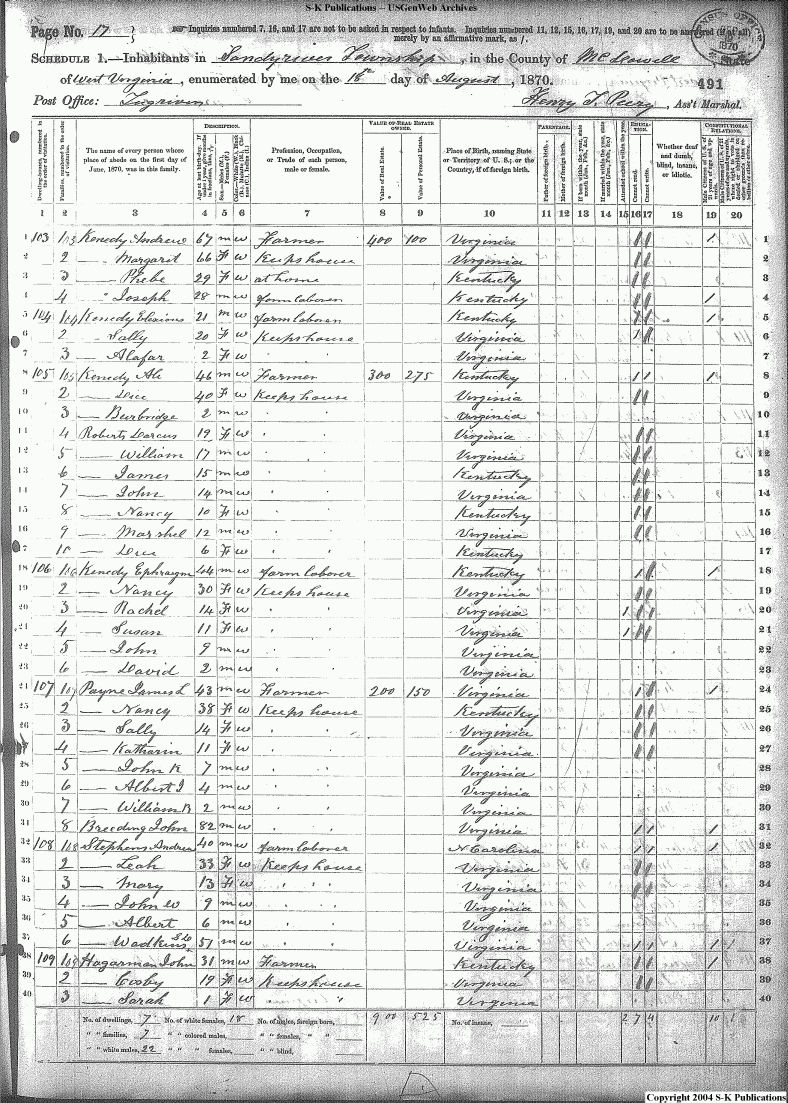 S-K Publications – USGenWeb Archives
Page No. 17
Inquiries numbered 7, 16, and 17 are not to be asked in respect to infants. Inquiries numbered 11, 12, 15, 16, 17, 19, and 20 are to be answered (if at all) merely by an affirmative mark, as /.
1870
SCHEDULE 1.—Inhabitants in Sandyriver Township, in the County of McDowell, State
of West Virginia, enumerated by me on the 18th day of August, 1870.
491
Post Office: Henry T. Peery, Ass't Marshal.
DESCRIPTION. VALUE OF REAL ESTATE OWNED. PARENTAGE. EDUCATION. CONSTITUTIONAL RELATIONS.
Dwelling-houses, numbered in the order of visitation.
Families, numbered in the order of visitation.
The name of every person whose place of abode on the first day of June, 1870, was in this family.
Profession, Occupation, or Trade of each person, male or female.
Value of Real Estate.
Value of Personal Estate.
Place of Birth, naming State or Territory of U. S.; or the Country, if of foreign birth.
Father of foreign birth.
Mother of foreign birth.
Attended school within the year.
Cannot read.
Cannot write.
Whether deaf and dumb, blind, insane, or idiotic.
1 2 3 4 5 6 7 8 9 10 11 12 13 14 15 16 17 18 19 20
1 103 103 Kenedy Andrew 67 m w Farmer 400 100 Virginia / / / 1
2 2 — Margarit 66 F w Keeps house Virginia / / 2
3 3 — Phebe 29 F w at home Kentucky / / 3
4 4 " Joseph 28 m w farm laborer Kentucky / / / 4
5 104 104 Kenedy 21 m w farm laborer Kentucky / / / 5
6 2 — Sally 20 F w Keeps house Virginia / / 6
7 3 — Alafar 2 F w Virginia 7
8 105 105 Kenedy Ali 46 m w Farmer 300 275 Kentucky / / / 8
9 2 — Dice 40 F w Keeps house Virginia / / 9
10 3 — Burbridge 2 m w Virginia 10
11 4 Roberts Dorcus 19 F w Virginia / / 11
12 5 — William 17 m w Virginia / / 12
13 6 — James 15 m w Kentucky / / 13
14 7 — John 14 m w Virginia / / 14
15 8 — Nancy 10 F w Kentucky / / 15
16 9 — Marshel 12 m w Virginia / / 16
17 10 — Dice 6 F w Kentucky 17
18 106 106 Kenedy Ephraigm 44 m w farm laborer Kentucky / / / 18
19 2 — Nancy 30 F w Keeps house Virginia / / 19
20 3 — Rachel 14 F w Virginia 1 / / 20
21 4 — Susan 11 F w Virginia 1 / / 21
22 5 — John 9 m w Virginia 22
23 6 — David 2 m w Virginia 23
24 107 107 Payne James L 43 m w Farmer 200 150 Virginia / / / 24
25 2 — Nancy 38 F w Keeps house Kentucky / / 25
26 3 — Sally 14 F w Virginia / / 26
27 4 — Katharin 11 F w Virginia / / 27
28 5 — John K 7 m w Virginia 28
29 6 — Albert J 4 m w Virginia 29
30 7 — William B 2 m w Virginia 30
31 8 Breeding John 82 m w Virginia / / / 31
32 108 108 Stephens Andrew 40 m w farm laborer N Carolina / / / 32
33 2 — Leah 33 F w Keeps house Virginia / / 33
34 3 — Mary 13 F w Virginia / / 34
35 4 — John W 9 m w Virginia 35
36 5 — Albert 6 m w Virginia 36
37 6 — Wadkins 51 m w Virginia / / / / 37
38 109 109 Hagarman John 31 m w Farmer Kentucky / / / 38
39 2 — Cosby 19 F w Keeps house Virginia / / 39
40 3 — Sarah 1 F w Virginia 40
No. of dwellings, 7 No. of white females, 18 No. of males, foreign born, 900 525 No. of insane, 2 7 4 10 1
" " families, 7 " " colored males, " " females, " "
" " white males, 22 " " " females, " " blind,
Copyright 2004 S-K Publications